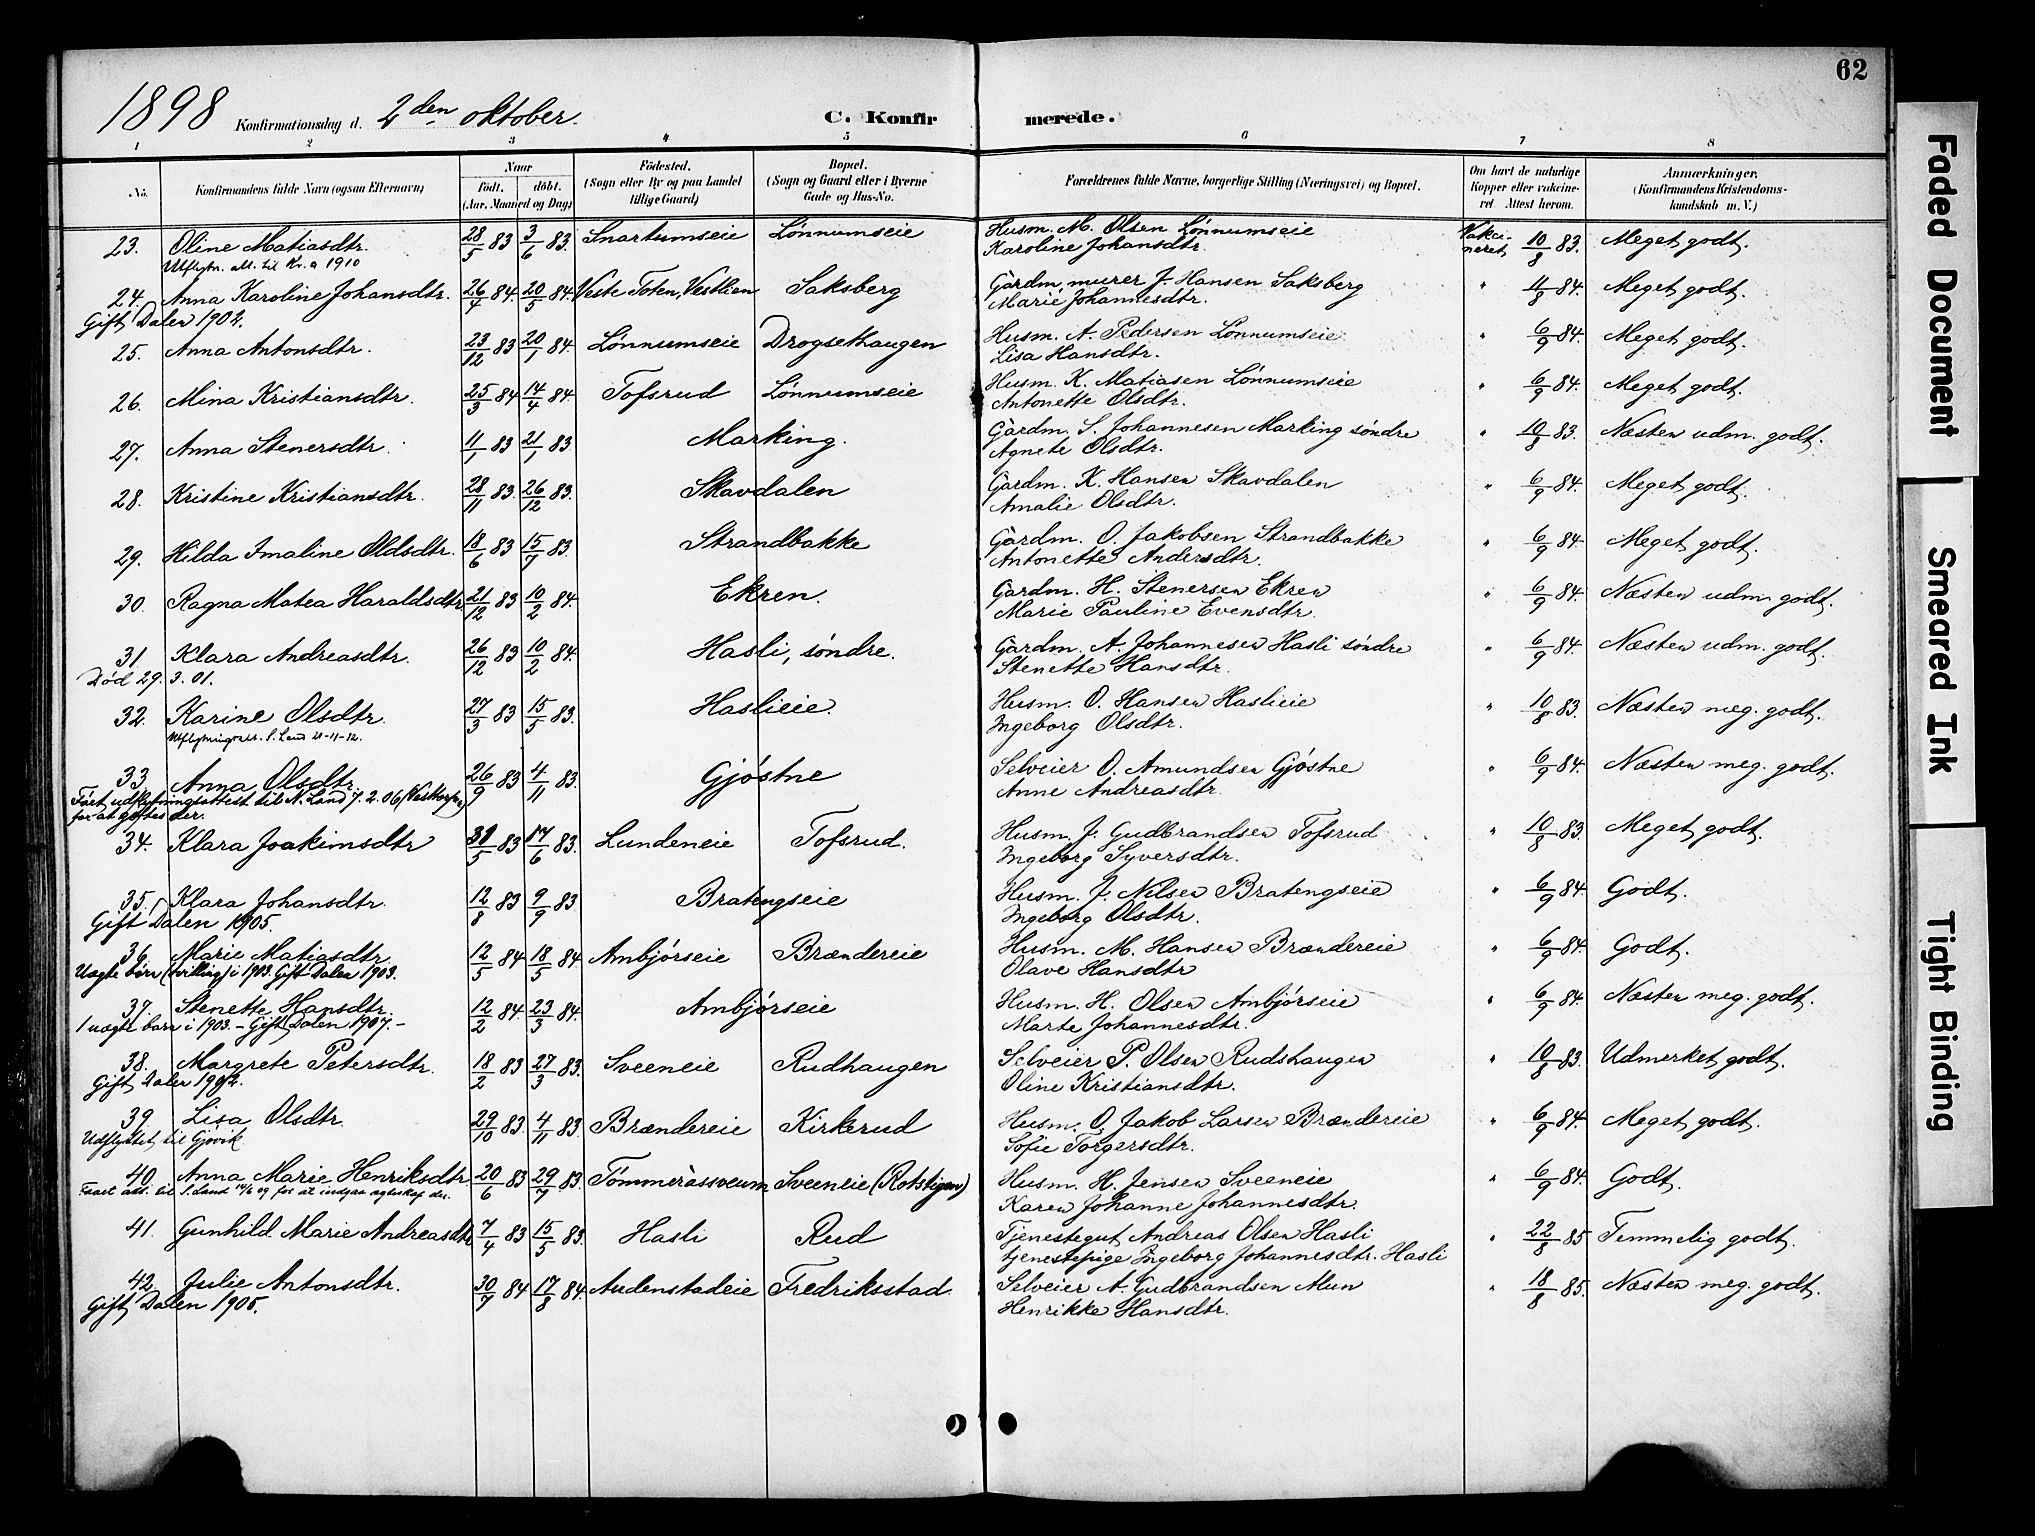 62
1898 Konfirmationsdag d. 2den oktober. C. Konfirmerede.
1 2 3 4 5 6 7 8
No. Konfirmandens fulde Navn (ogsaa Efternavn) Naar født. døbt. (Aar, Maaned og Dag) Fødested. (Sogn eller By og paa Landet tillige Gaard) Bopæl. (Sogn og Gaard eller i Byerne Gade og Hus-No. Forældrenes fulde Navne, borgerlige Stilling (Næringsvei) og Bopæl. Om havt de naturlige Kopper eller vakcineret Attest herom. Anmærkninger. (Konfirmandens Kristendomskundskab m. V.)
23. Oline Matiasdtr. 28/5 83 3/6 83. Snartumseie Lønnumseie Husm. M. Olsen Lønnumseie Vakcineret 10/8 83. Meget godt.
Utflytn. att. til Kr.a 1910 Karoline Johansdtr.
24. Anna Karoline Johansdtr. 26/4 84. 20/5 84. Vestre Toten, Vestlien Saksberg Gårdm, murer J. Hansen Saksberg " 11/8 84. Meget godt.
Gift Dalen 1902. Marie Johannesdtr.
25. Anna Antonsdtr. 23/12 83 20/1 84. Lønnumseie Drogsethaugen Husm. A. Pedersen Lønnumseie " 6/9 84. Meget godt.
Lisa Hansdtr.
26. Mina Kristiansdtr. 25/3 84 14/4 84. Tofsrud Lønnumseie Husm. K. Matiasen Lønnumseie " 6/9 84. Meget godt.
Antonette Olsdtr.
27. Anna Stenersdtr. 11/1 83 21/1 83 Marking. Gårdm. S. Johannesen Marking søndre " 10/8 83. Næsten udm. godt.
Agnete Olsdtr.
28. Kristine Kristiansdtr. 28/11 83. 26/12 83. Skavdalen Gårdm. K. Hansen Skavdalen " 6/9 84. Meget godt.
Amalie Olsdtr.
29. Hilda Imaline Olsdtr. 18/6 83 15/7 83. Strandbakke Gårdm. O. Jakobsen Strandbakke " 6/9 84. Meget godt.
Antonette Andersdtr.
30. Ragna Matea Haraldsdtr 21/12 83 10/2 84. Ekren. Gårdm. H. Stenersen Ekren " 6/9 84. Næsten udm. godt.
Marie Pauline Evensdtr.
31. Klara Andreasdtr. 26/12 83 10/2 84. Hasli, søndre. Gårdm. A. Johannesen Hasli søndre " 6/9 84. Næsten udm. godt.
Død 29. 3. 01. Stenette Hansdtr.
32. Karine Olsdtr. 27/3 83 15/5 83. Haslieie. Husm. O. Hansen Haslieie " 10/8 83. Næsten meg. godt.
Utflytningsatt. S. Land 21-11-12. Ingeborg Olsdtr.
33. Anna Olsdtr. 26/9 83 4/11 83. Gjøstne Selveier O. Amundsen Gjøstne " 6/9 84. Næsten meg. godt.
Fået udflytningsattest til N. Land 7. 2. 06 for at giftes der. Anne Andreasdtr.
34. Klara Joakimsdtr 31/5 83 17/6 83. Lundeneie Tofsrud. Husm. J. Gudbrandsen Tofsrud " 10/8 83. Meget godt.
Ingeborg Syversdtr.
35. Klara Johansdtr. 12/8 83 9/9 83. Bratengseie Husm. J. Nilsen Bratengseie " 6/9 84. Godt.
Gift Dalen 1905. Ingeborg Olsdtr.
36. Marie Matiasdtr. 12/5 84 18/5 84 Ambjørseie Brændereie Husm. M. Hansen Brændereie " 6/9 84. Godt.
Uægte børn (tvilling) i 1903. Gift Dalen 1903. Olave Hansdtr
37. Stenette Hansdtr. 12/2 84 23/3 84. Ambjørseie Husm. H. Olsen Ambjørseie " 6/9 84. Næsten meg. godt.
1 uægte barn i 1903. - Gift Dalen 1907. - Marte Johannesdtr.
38. Margrete Petersdtr. 18/2 83 27/3 83. Sveeneie Rudhaugen Selveier P. Olsen Rudshaugen " 10/8 83. Udmerket godt.
Gift Dalen 1902. Oline Kristiansdtr.
39. Lisa Olsdtr. 29/10 83. 4/11 83. Brændereie Kirkerud Husm. O. Jakob Larsen Brændereie " 6/9 84. Meget godt.
Udflyttet til Gjøvik Sofie Torgersdtr.
40. Anna Marie Henriksdtr 20/6 83 29/7 83. Tømmeråssveum Sveeneie (Rotstigen) Husm. H. Jensen Sveeneie " 6/9 84. Godt.
Faaet att. til S. Land 14/6 09 for at indgaa egteskap der. Karen Johanne Johannesdtr.
41. Gunhild Marie Andreasdtr 7/4 83 15/5 83. Hasli Rud Tjenestegut Andreas Olsen Hasli " 22/8 85 Temmelig godt.
tjenestepige Ingeborg Johannesdtr. Hasli
42. Julie Antonsdtr. 30/7 84 17/8 84. Audenstadeie Fredriksstad. Selveier A. Gudbrandsen Alun " 18/8 85. Næsten meg. godt.
Gift Dalen 1905. Henrikke Hansdtr.
Faded Document
Smeared Ink
Tight Binding